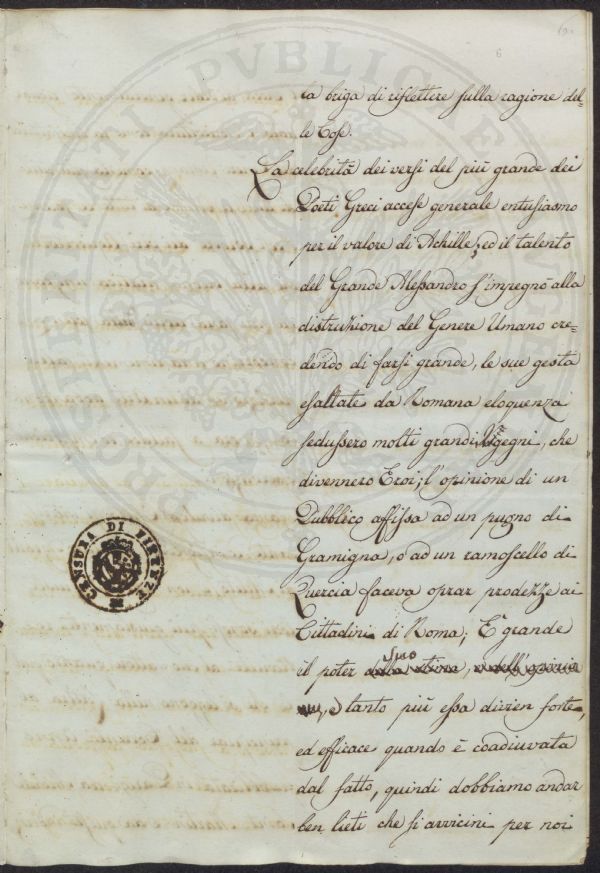 6
ta briga di riflettere sulla ragione del=
le Cose.
La celebrità dei versi del più grande dei
Poeti Greci accese generale entusiasmo
per il valore di Achille, ed il talento
del Grande Alessandro s'impegnò alla
distruzione del Genere Umano cre=
dendo di farsi grande, le sue gesta
esaltate da Romana eloquenza
sedussero molti grandi Ingegni, che
divennero Eroi; l'opinione di un
Pubblico affissa ad un pugno di
Gramigna, o ad un ramoscello di
Quercia faceva oprar prodezze ai
Cittadini di Roma; E' grande
il poter suo
, e tanto più essa divien forte,
ed efficace quando è coadiuvata
dal fatto, quindi dobbiamo andar
ben lieti che si avvicini per noi
CENSURA DI FIRENZE